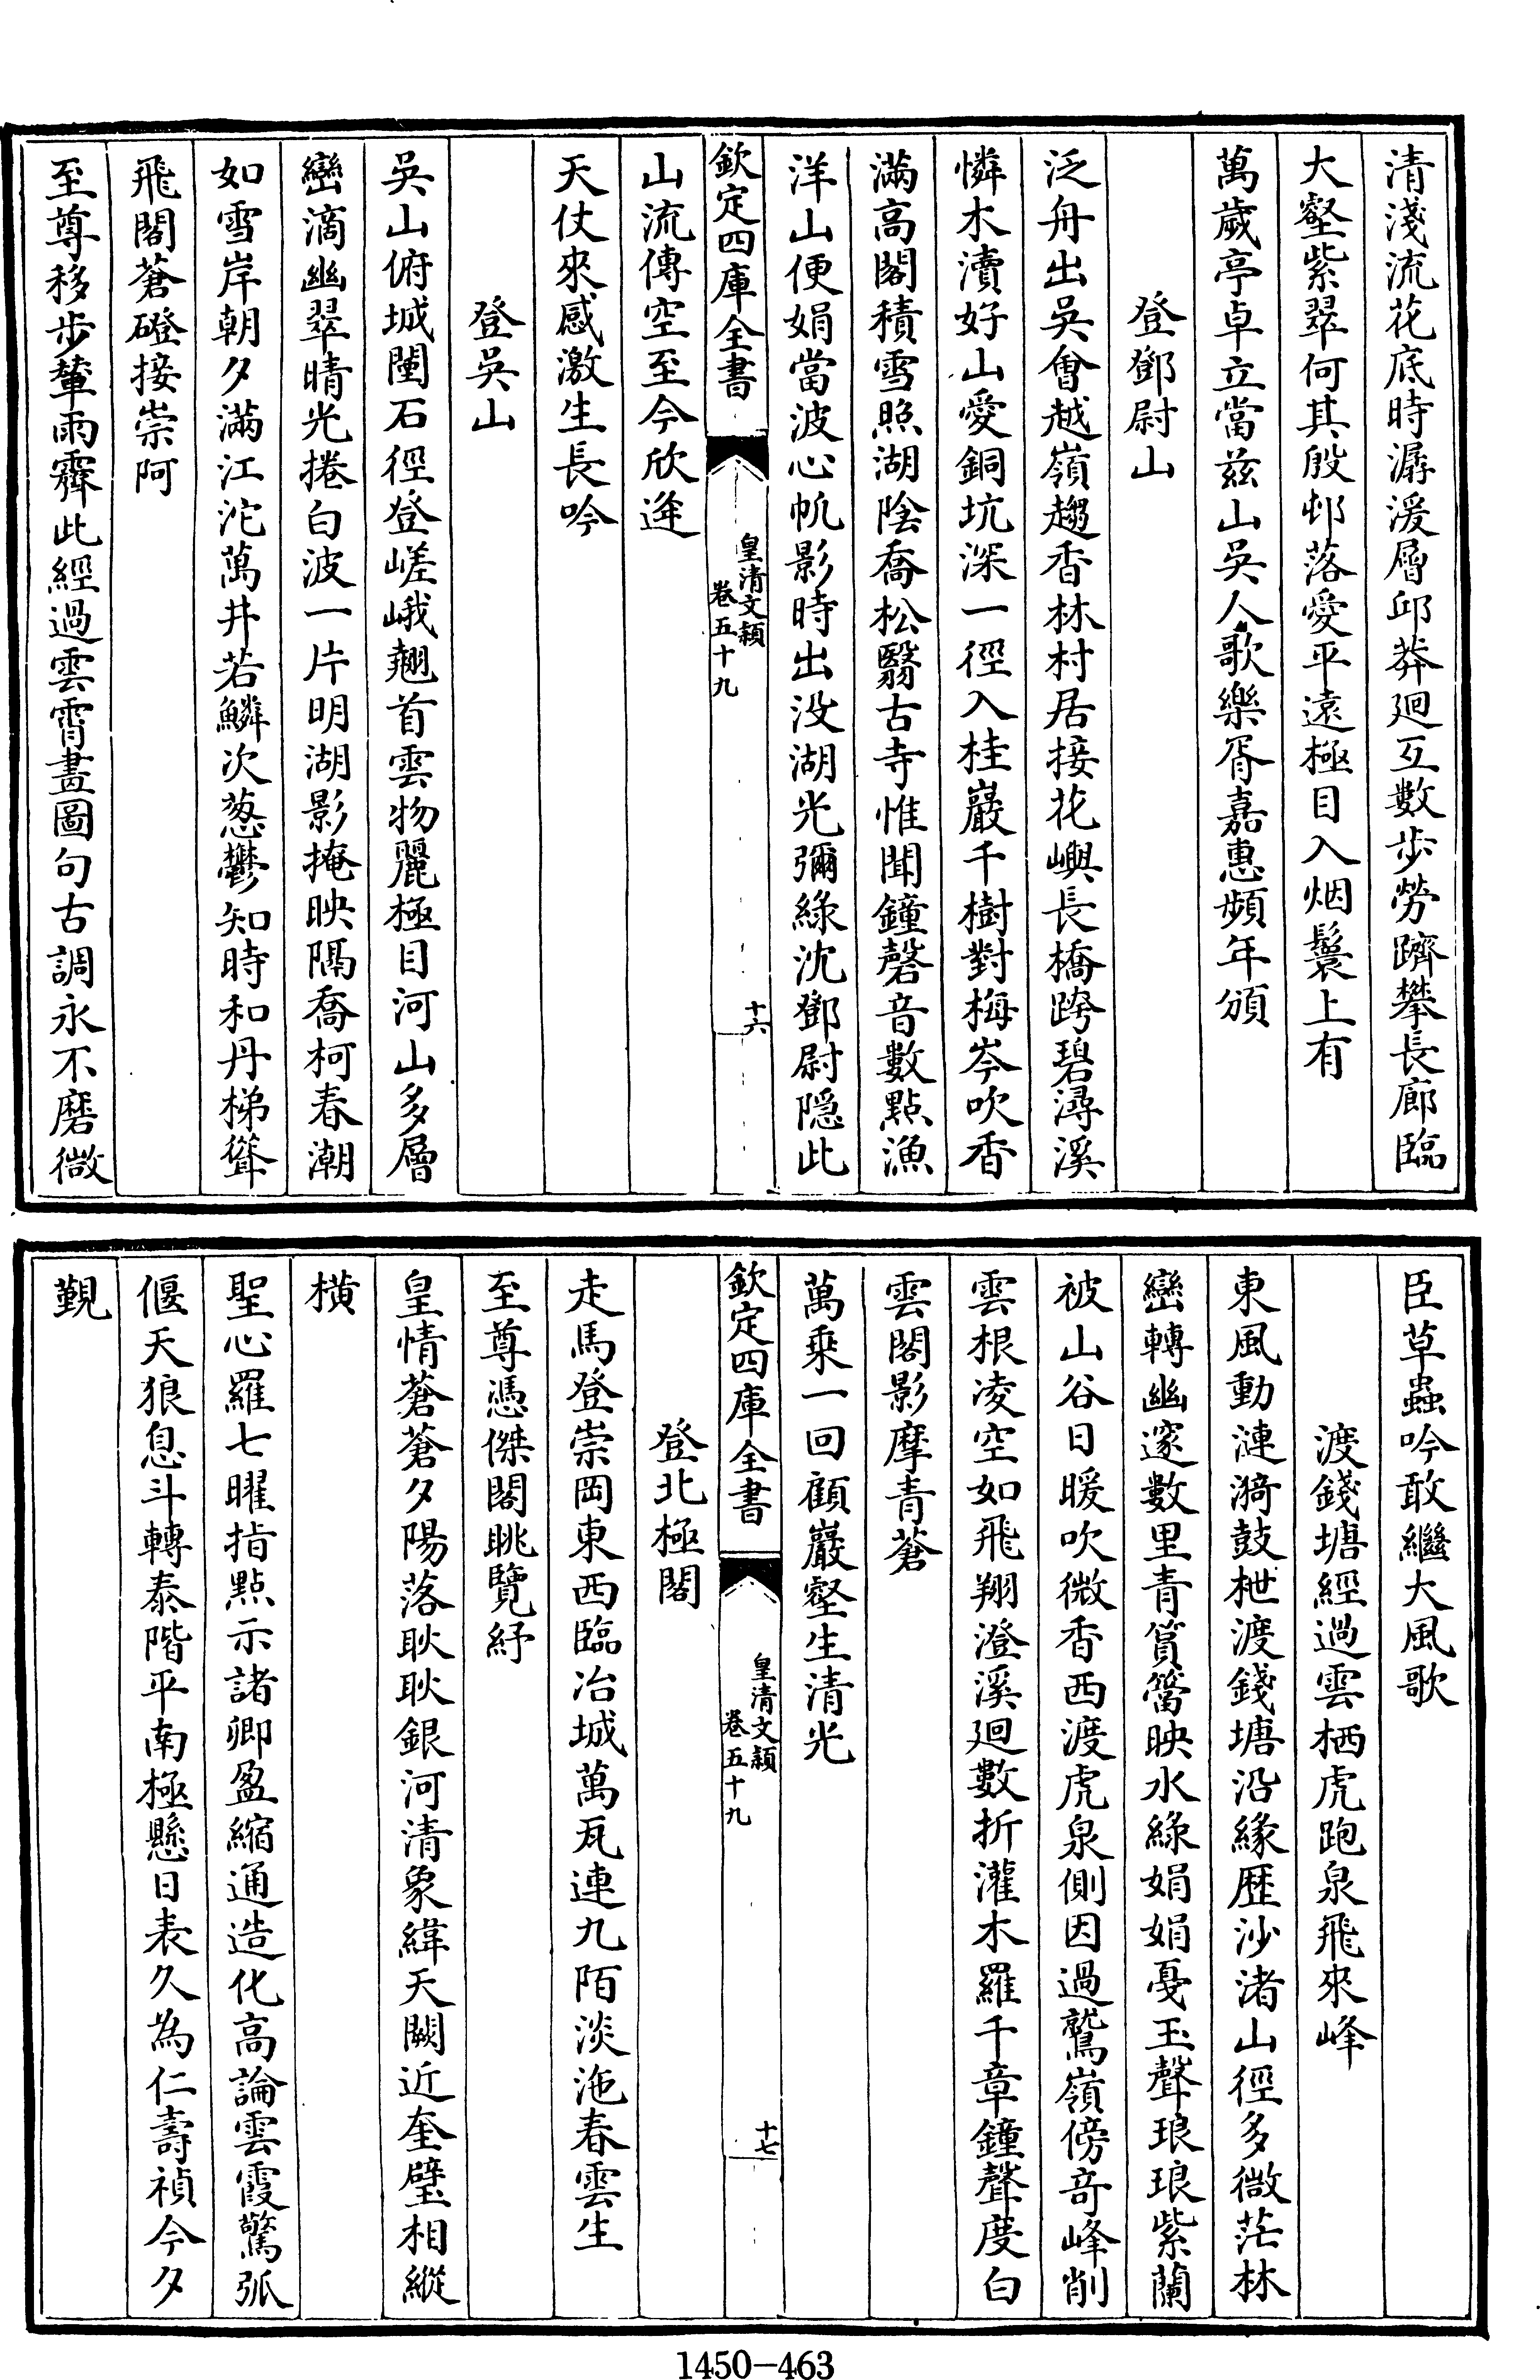 清淺流花底時潺湲層邱莽廻互數步勞躋攀長廊臨
大壑紫翠何其殷邨落愛平遠極目入烟鬟上有
萬歲亭卓立當兹山吳人歌樂胥嘉惠頻年頒
登鄧尉山
泛舟出吳會越嶺趨香林村居接花嶼長橋跨碧潯溪
憐木瀆好山愛銅坑深一徑入桂巖千樹對梅岑吹香
滿高閣積雪照湖陰喬松翳古寺惟聞鐘磬音數點漁
洋山便娟當波心帆影時出没湖光彌綠沈鄧尉隠此
欽定四庫全書
皇清文穎
卷五十九
十六
山流傳空至今欣逢
天仗來感激生長吟
登吳山
吳山俯城闉石徑登嵯峨翹首雲物麗極目河山多層
巒滴幽翠晴光捲白波一片明湖影掩映隔喬柯春潮
如雪岸朝夕滿江沱萬井若鱗次葱鬱知時和丹梯聳
飛閣蒼磴接崇阿
至尊移步輦雨霽此經過雲霄畫圖句古調永不磨微
臣草蟲吟敢繼大風歌
渡錢塘經過雲栖虎跑泉飛來峰
東風動漣漪鼓枻渡錢塘沿緣歴沙渚山徑多微茫林
巒轉幽邃數里青篔簹映水綠娟娟戞玉聲琅琅紫蘭
被山谷日暖吹微香西渡虎泉側因過鷲嶺傍竒峰削
雲根凌空如飛翔澄溪廻數折灌木羅千章鐘聲度白
雲閣影摩青蒼
萬乘一回顧巖壑生清光
欽定四庫全書
皇清文穎
卷五十九
十七
登北極閣
走馬登崇岡東西臨冶城萬瓦連九陌淡沲春雲生
至尊憑傑閣眺覽紓
皇情蒼蒼夕陽落耿耿銀河清象緯天闕近奎璧相縱
橫
聖心羅七曜指點示諸卿盈縮通造化高論雲霞驚弧
偃天狼息斗轉泰階平南極懸日表久為仁壽禎今夕
覲
1450-463